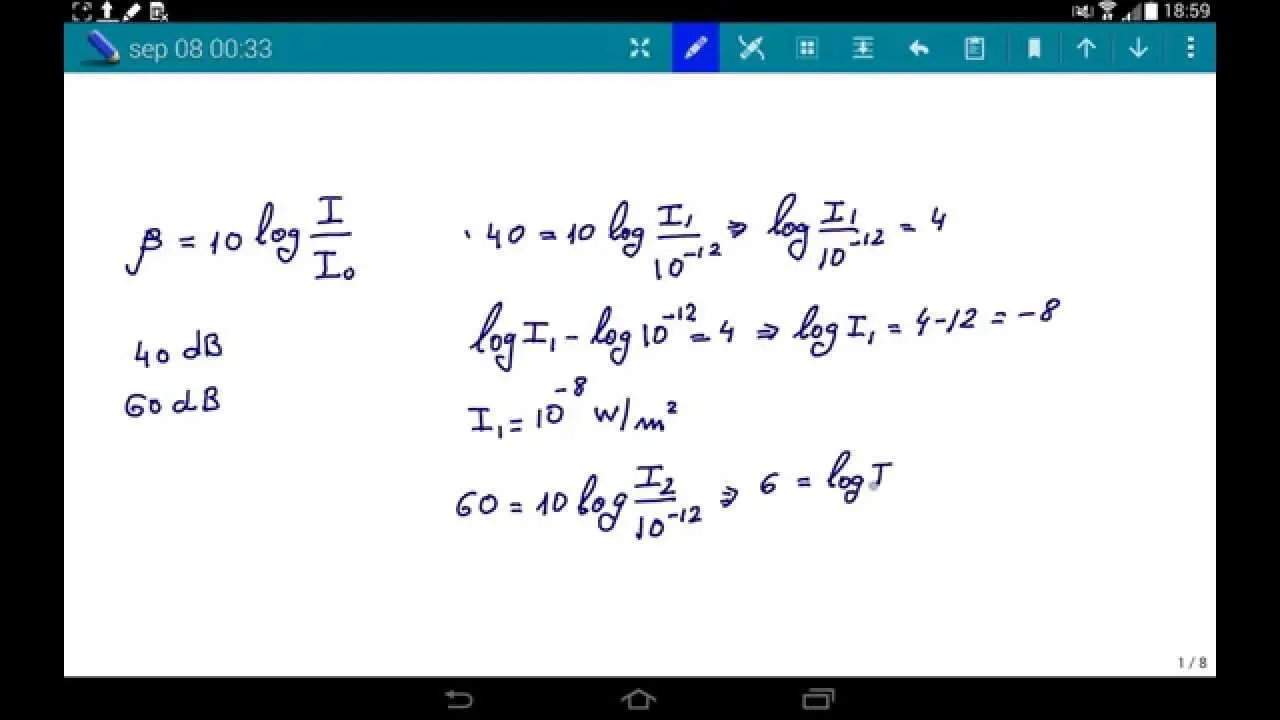 18:59
sep 08 00:33
β = 10 log I/I₀
· 40 = 10 log I₁/10⁻¹² ⇒ log I₁/10⁻¹² = 4
log I₁ - log 10⁻¹² = 4 ⇒ log I₁ = 4-12 = -8
40 dB
60 dB
I₁ = 10⁻⁸ W/m²
60 = 10 log I₂/10⁻¹² ⇒ 6 = log I
1 / 8